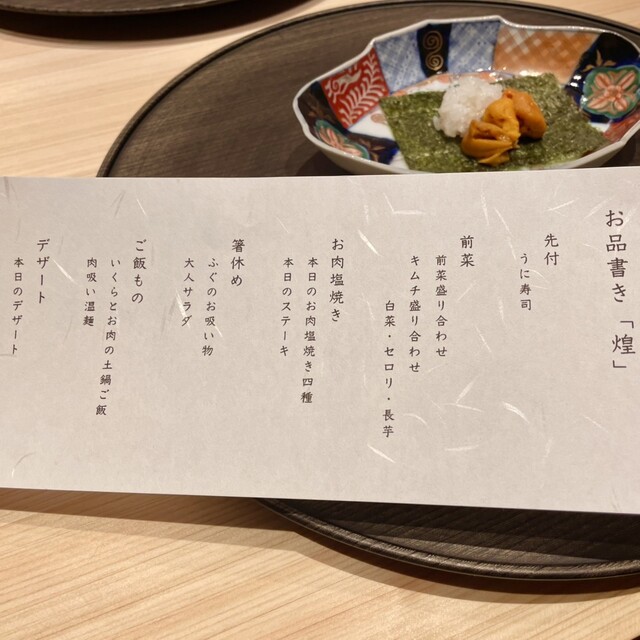 お品書き「煌」
先付
うに寿司
前菜
前菜盛り合わせ
キムチ盛り合わせ
白菜・セロリ・長芋
お肉塩焼き
本日のお肉塩焼き四種
本日のステーキ
箸休め
ふぐのお吸い物
大人サラダ
ご飯もの
いくらとお肉の土鍋ご飯
肉吸い温麺
デザート
本日のデザート